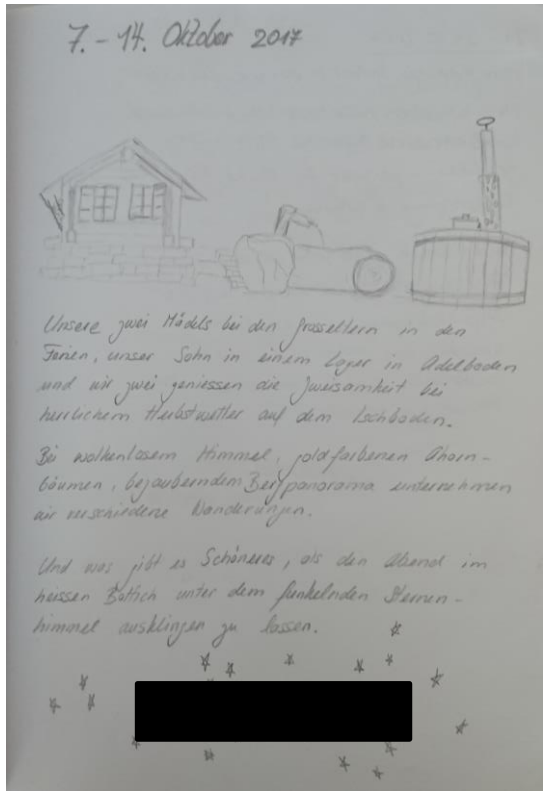 7. - 14. Oktober 2017
Unsere zwei Mädels bei den Grosseltern in den
Ferien, unser Sohn in einem Lager in Adelboden
und wir zwei geniessen die Zweisamkeit bei
herrlichem Herbstwetter auf dem Ischboden.
Bei wolkenlosem Himmel, goldfarbenen Ahorn-
bäumen, bezauberndem Bergpanorama unternehmen
wir verschiedene Wanderungen.
Und was gibt es Schöneres, als den Abend im
heissen Bottich unter dem funkelnden Sternen-
himmel ausklingen zu lassen.